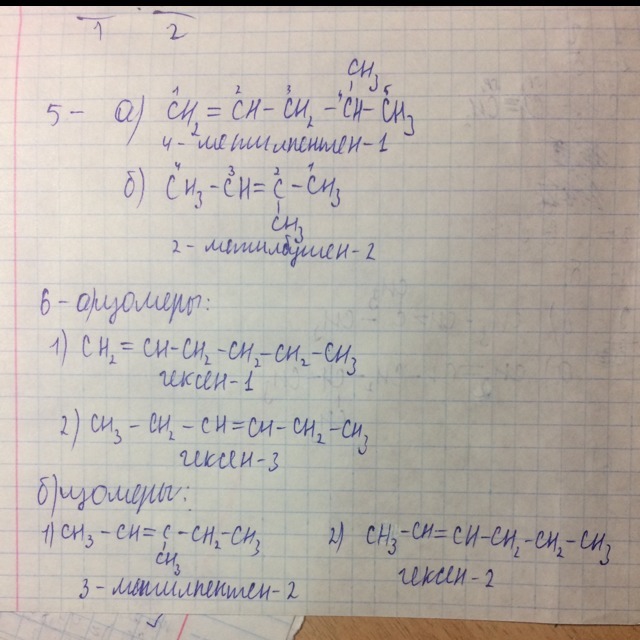 1 2
CH₃
5- а) CH₂ = CH - CH₂ - CH - CH₃
1 2 3 4 5
4-метилпентен-1
б) CH₃ - CH = C - CH₃
4 3 2 1
CH₃
2-метилбутен-2
6-а)изомеры:
1) CH₂ = CH-CH₂-CH₂-CH₂-CH₃
гексен-1
2) CH₃ - CH₂ - CH=CH-CH₂-CH₃
гексен-3
б)изомеры:
1) CH₃ - CH = C - CH₂ - CH₃
CH₃
3-метилпентен-2
2) CH₃-CH=CH-CH₂-CH₂-CH₃
гексен-2